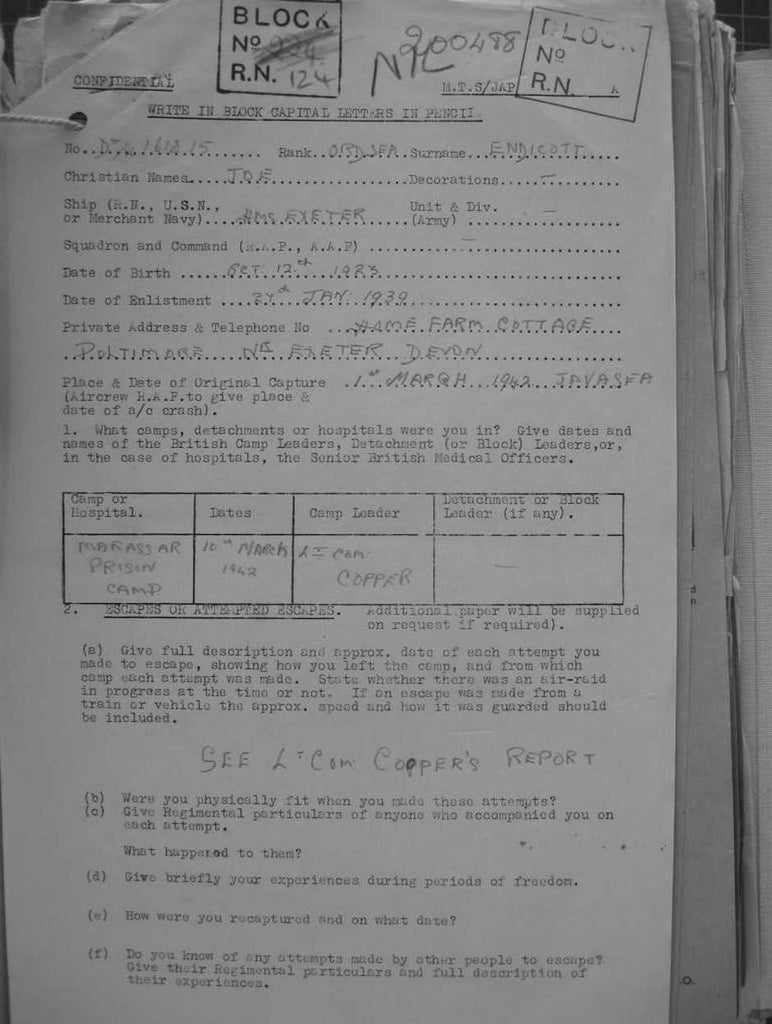 BLOCK
No
R.N. 124
200488
BLOC
No
R.N.
CONFIDENTIAL
M.T.S/JAP
WRITE IN BLOCK CAPITAL LETTERS IN PENCIL.
No. Rank..ORD.SEA.Surname...ENDICOTT.....
Christian Names.....JOE.................Decorations.....—.......
Ship (R.N., U.S.N., Unit & Div. —
or Merchant Navy)....HMS.EXETER......(Army) ...................
Squadron and Command (R.A.F., A.A.F) ............—...............
Date of Birth ......OCT. 12th...1923........................
Date of Enlistment ....JAN. 1939........................
Private Address & Telephone No ...HOME.FARM.COTTAGE....
..POLTIMORE....NR.EXETER..DEVON..................
Place & Date of Original Capture .1.st MARCH..1942...JAVASEA
(Aircrew R.A.F.to give place &
date of a/c crash).
1. What camps, detachments or hospitals were you in? Give dates and
names of the British Camp Leaders, Detachment (or Block) Leaders,or,
in the case of hospitals, the Senior British Medical Officers.
Camp or Hospital. Dates Camp Leader Detachment or Block Leader (if any).
MARASSAR PRISON CAMP 10TH MARCH 1942 LT COM. COPPER —
2. ESCAPES OR ATTEMPTED ESCAPES. Additional paper will be supplied
on request if required).
(a) Give full description and approx. date of each attempt you
made to escape, showing how you left the camp, and from which
camp each attempt was made. State whether there was an air-raid
in progress at the time or not. If an escape was made from a
train or vehicle the approx. speed and how it was guarded should
be included.
SEE LT COM COPPER'S REPORT
(b) Were you physically fit when you made these attempts?
(c) Give Regimental particulars of anyone who accompanied you on
each attempt.
What happened to them?
(d) Give briefly your experiences during periods of freedom.
(e) How were you recaptured and on what date?
(f) Do you know of any attempts made by other people to escape?
Give their Regimental particulars and full description of
their experiences.